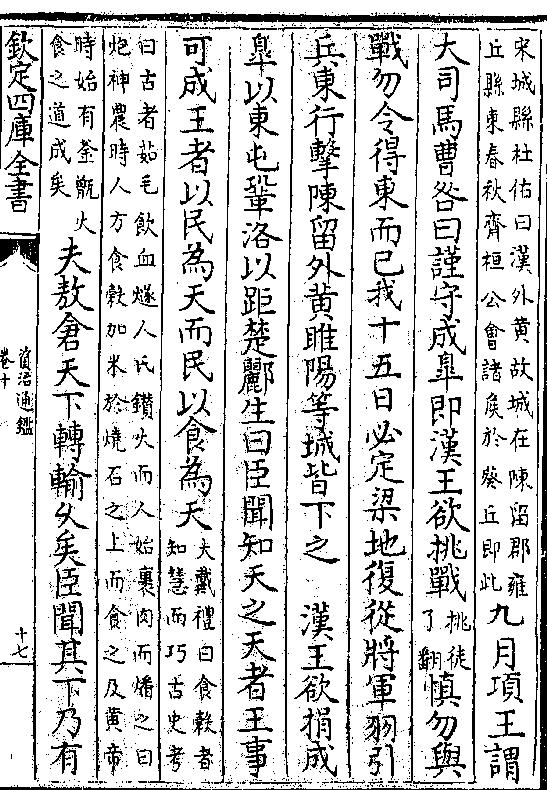 宋城縣杜佑曰漢外黄故城在陳留郡雍
丘縣東春秋齊桓公會諸侯於葵丘即此
九月項王謂
大司馬曹咎曰謹守成臯即漢王欲挑戰
挑徒
了翻
慎勿與
戰勿令得東而已我十五日必定梁地復從將軍羽引
兵東行擊陳留外黄睢陽等城皆下之 漢王欲捐成
臯以東屯鞏洛以距楚酈生曰臣聞知天之天者王事
可成王者以民為天而民以食為天
大戴禮曰食糓者
知慧而巧古史考
曰古者茹毛飲血燧人氏鑚火而人始裹肉而燔之曰
炮神農時人方食糓加米於燒石之上而食之及黄帝
時始有釜甑火
食之道成矣
夫敖倉天下轉輸乆矣臣聞其下乃有
欽定四庫全書
資治通鑑
卷十
十七